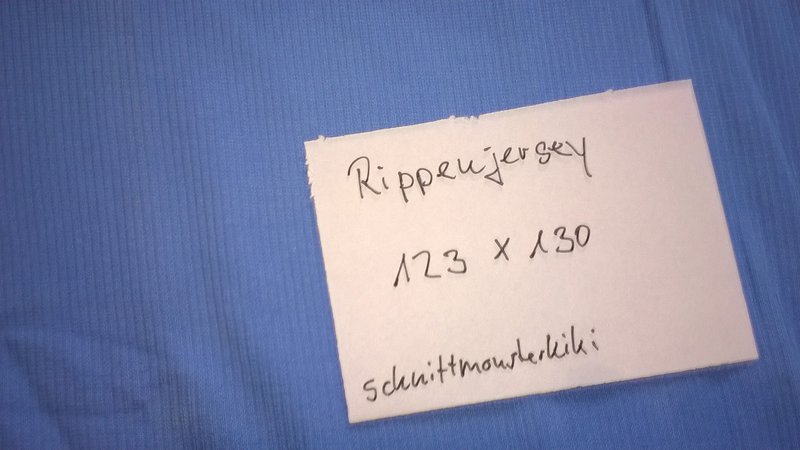 Rippenjersey
123 x 130
schnittmonsterkiki